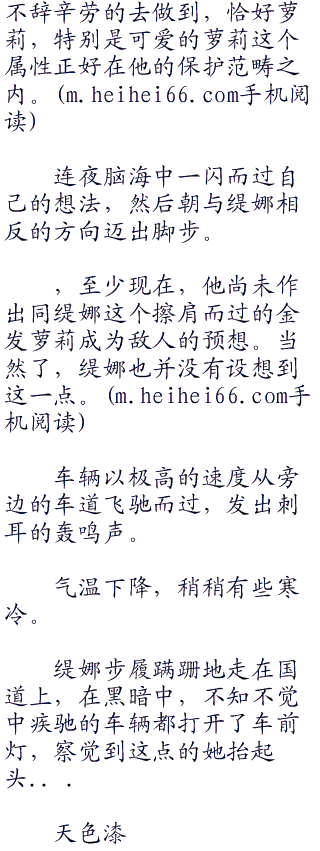 不辞辛劳的去做到，恰好萝
莉，特别是可爱的萝莉这个
属性正好在他的保护范畴之
内。(m.heihei66.com手机阅
读)
连夜脑海中一闪而过自
己的想法，然后朝与缇娜相
反的方向迈出脚步。
，至少现在，他尚未作
出同缇娜这个擦肩而过的金
发萝莉成为敌人的预想。当
然了，缇娜也并没有设想到
这一点。(m.heihei66.com手
机阅读)
车辆以极高的速度从旁
边的车道飞驰而过，发出刺
耳的轰鸣声。
气温下降，稍稍有些寒
冷。
缇娜步履蹒跚地走在国
道上，在黑暗中，不知不觉
中疾驰的车辆都打开了车前
灯，察觉到这点的她抬起
头...
天色漆